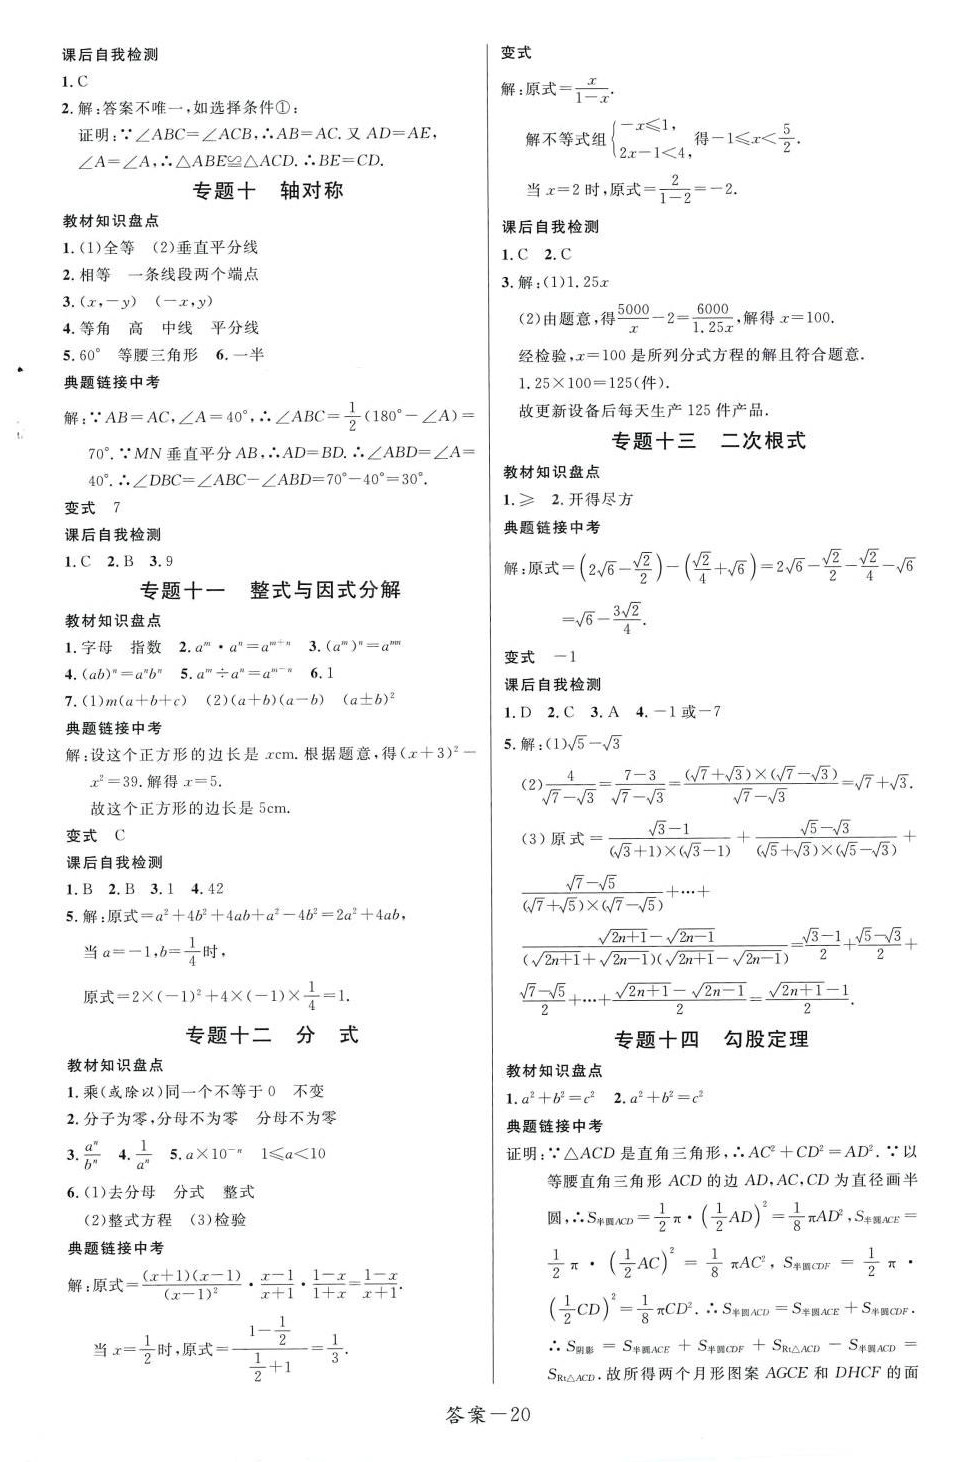 课后自我检测
1. C
2. 解:答案不唯一,如选择条件①:
证明:∵∠ABC=∠ACB,∴AB=AC. 又 AD=AE,
∠A=∠A,∴△ABE≌△ACD. ∴BE=CD.
专题十 轴对称
教材知识盘点
1. (1)全等 (2)垂直平分线
2. 相等 一条线段两个端点
3. (x,-y) (-x,y)
4. 等角 高 中线 平分线
5. 60° 等腰三角形 6. 一半
典题链接中考
解:∵AB=AC,∠A=40°,∴∠ABC=1/2(180°-∠A)=
70°. ∵MN 垂直平分 AB,∴AD=BD. ∴∠ABD=∠A=
40°. ∴∠DBC=∠ABC-∠ABD=70°-40°=30°.
变式 7
课后自我检测
1. C 2. B 3. 9
专题十一 整式与因式分解
教材知识盘点
1. 字母 指数 2. a^m·a^n=a^(m+n) 3. (a^m)^n=a^(mn)
4. (ab)^n=a^n b^n 5. a^m÷a^n=a^(m-n) 6. 1
7. (1)m(a+b+c) (2)(a+b)(a-b) (a±b)²
典题链接中考
解:设这个正方形的边长是 xcm. 根据题意,得(x+3)²-
x²=39. 解得 x=5.
故这个正方形的边长是 5cm.
变式 C
课后自我检测
1. B 2. B 3. 1 4. 42
5. 解:原式=a²+4b²+4ab+a²-4b²=2a²+4ab,
当 a=-1,b=1/4时,
原式=2×(-1)²+4×(-1)×1/4=1.
专题十二 分 式
教材知识盘点
1. 乘(或除以)同一个不等于 0 不变
2. 分子为零,分母不为零 分母不为零
3. a^n/b^n 4. 1/a^n 5. a×10^(-n) 1≤a<10
6. (1)去分母 分式 整式
(2)整式方程 (3)检验
典题链接中考
解:原式=(x+1)(x-1)/(x-1)²·(x-1)/(x+1)·(1-x)/(1+x)=(1-x)/(x+1).
当 x=1/2时,原式=(1-1/2)/(1/2+1)=1/3.
变式
解:原式=x/(1-x).
解不等式组{-x≤1, 2x-1<4, 得-1≤x<5/2.
当 x=2 时,原式=2/(1-2)=-2.
课后自我检测
1. C 2. C
3. 解:(1)1.25x
(2)由题意,得5000/x-2=6000/1.25x,解得 x=100.
经检验,x=100 是所列分式方程的解且符合题意.
1.25×100=125(件).
故更新设备后每天生产 125 件产品.
专题十三 二次根式
教材知识盘点
1. ≥ 2. 开得尽方
典题链接中考
解:原式=(2√6-√2/2)-(√2/4+√6)=2√6-√2/2-√2/4-√6
=√6-3√2/4.
变式 -1
课后自我检测
1. D 2. C 3. A 4. -1 或-7
5. 解:(1)√5-√3
(2)4/(√7-√3)=(7-3)/(√7-√3)=(√7+√3)×(√7-√3)/(√7-√3)=√7+√3.
(3)原式=(√3-1)/((√3+1)×(√3-1))+(√5-√3)/((√5+√3)×(√5-√3))+
(√7-√5)/((√7+√5)×(√7-√5))+…+
(√(2n+1)-√(2n-1))/((√(2n+1)+√(2n-1))(√(2n+1)-√(2n-1)))=(√3-1)/2+(√5-√3)/2+
(√7-√5)/2+…+(√(2n+1)-√(2n-1))/2=(√(2n+1)-1)/2.
专题十四 勾股定理
教材知识盘点
1. a²+b²=c² 2. a²+b²=c²
典题链接中考
证明:∵△ACD 是直角三角形,∴AC²+CD²=AD². ∵以
等腰直角三角形 ACD 的边 AD,AC,CD 为直径画半
圆,∴S半圆ACD=1/2π·(1/2AD)²=1/8πAD²,S半圆ACE=
1/2π·(1/2AC)²=1/8πAC²,S半圆CDF=1/2π·
(1/2CD)²=1/8πCD². ∴S半圆ACD=S半圆ACE+S半圆CDF.
∴S阴影=S半圆ACE+S半圆CDF+SRt△ACD-S半圆ACD=
SRt△ACD. 故所得两个月形图案 AGCE 和 DHCF 的面
答案-20